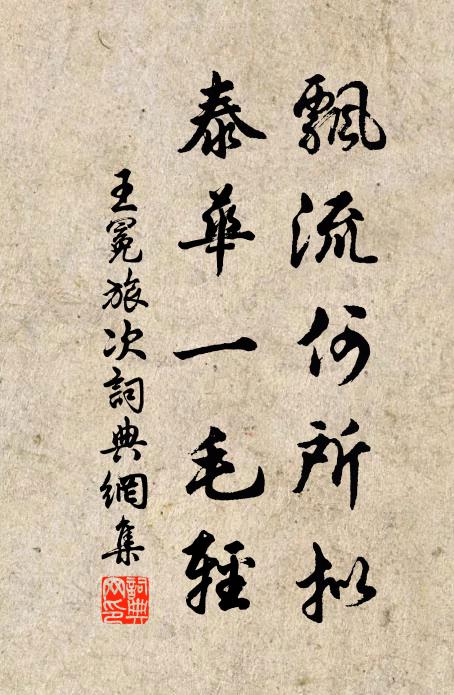 飄流何所擬
泰華一毛輕
王冕旅次詞典網集
詞典網印